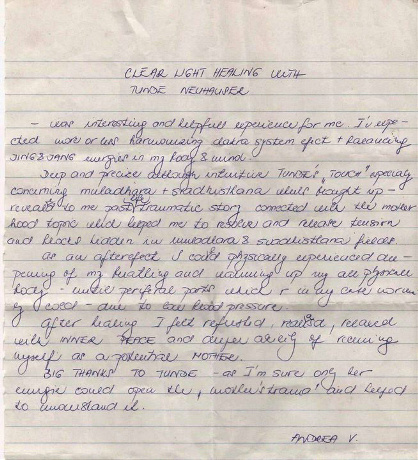 CLEAR LIGHT HEALING WITH
TUNDE NEUHAUSER
- was interesting and helpfull experience for me. I'v expe-
cted more or less harmonizing chakra system efect + balancing
JING & JANG energies in my body & mind.
Deep and precise although intuitive TUNDE'S "TOUCH" especialy
concerning muladhara + svadhisthana which bought up -
reveals to me past life traumatic story conected with the mother
hood topic which helped me to resolve and release tension
and blocks hidden in muladhara & svadhisthana places.
as an afterefect I could physically experienced dee-
pening of my breathing and warming up my all physical
body - while periferal parts which r in my case normaly
cold - due to low blood pressure.
After healing I felt refreshed, relaxed
with INNER PEACE and deeper ability of
myself as a potential MOTHER.
BIG THANKS TO TUNDE - as I'm sure only her
energie could open the, mother's trama" and helped
to understand it.
ANDREA V.